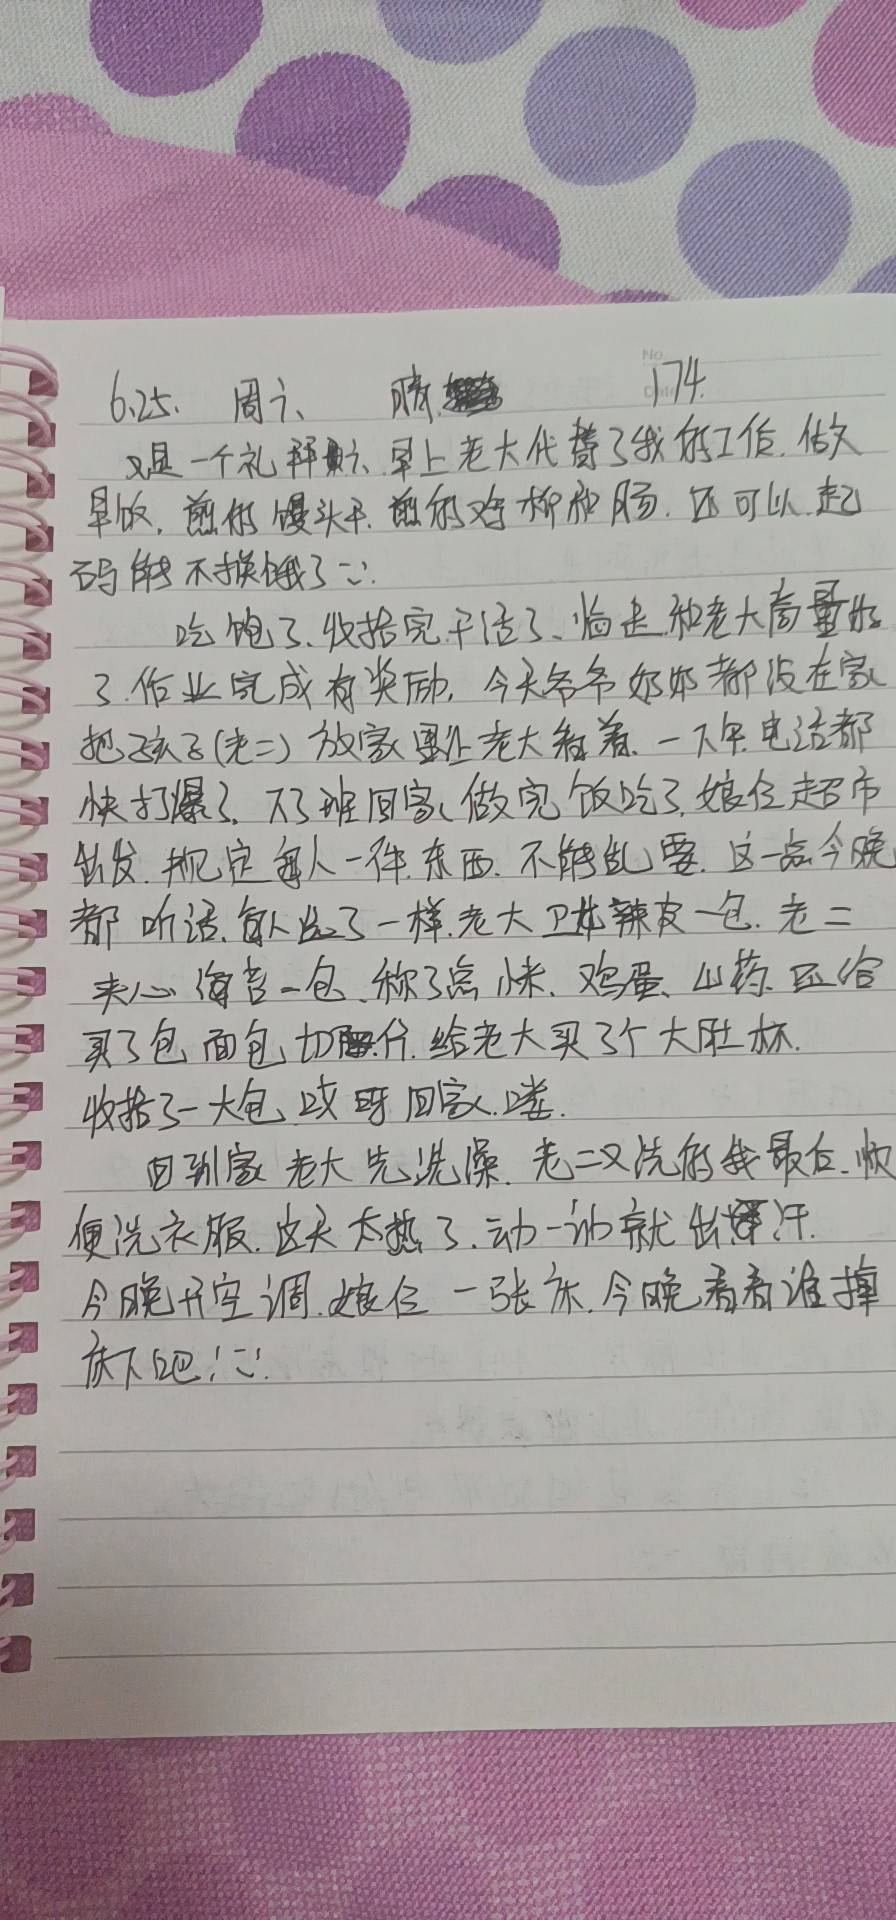 6.25. 周六、 晴. 174.
又是一个礼拜六、早上老大代替了我的工作. 做欠
早饭, 煎的馒头干. 煎的鸡柳和肠. 还可以. 起
码能不挨饿了
吃饱了、收拾完干活了、临走.和老大商量好
了.作业完成有奖励, 今天爷爷奶奶都没在家
把孩子(老二)放家里让老大看着. 一下午.电话都
快打爆了. 下了班回家、做完饭吃了, 娘仨超市
出发. 规定每人一件.东西. 不能乱要. 这一点今晚
都听话. 每人选了一样.老大卫龙辣皮一包. 老二
夹心海苔一包、称了点小米、鸡蛋、山药. 还给
买了包面包切片. 给老大买了个大肚杯.
收拾了一大包. 哎呀回家.喽.
回到家老大先洗澡. 老二又洗的我最后. 顺
便洗衣服. 这天太热了. 动一动就出汗.
今晚开空调. 娘仨一张床. 今晚看看谁掉
床下吧!
No